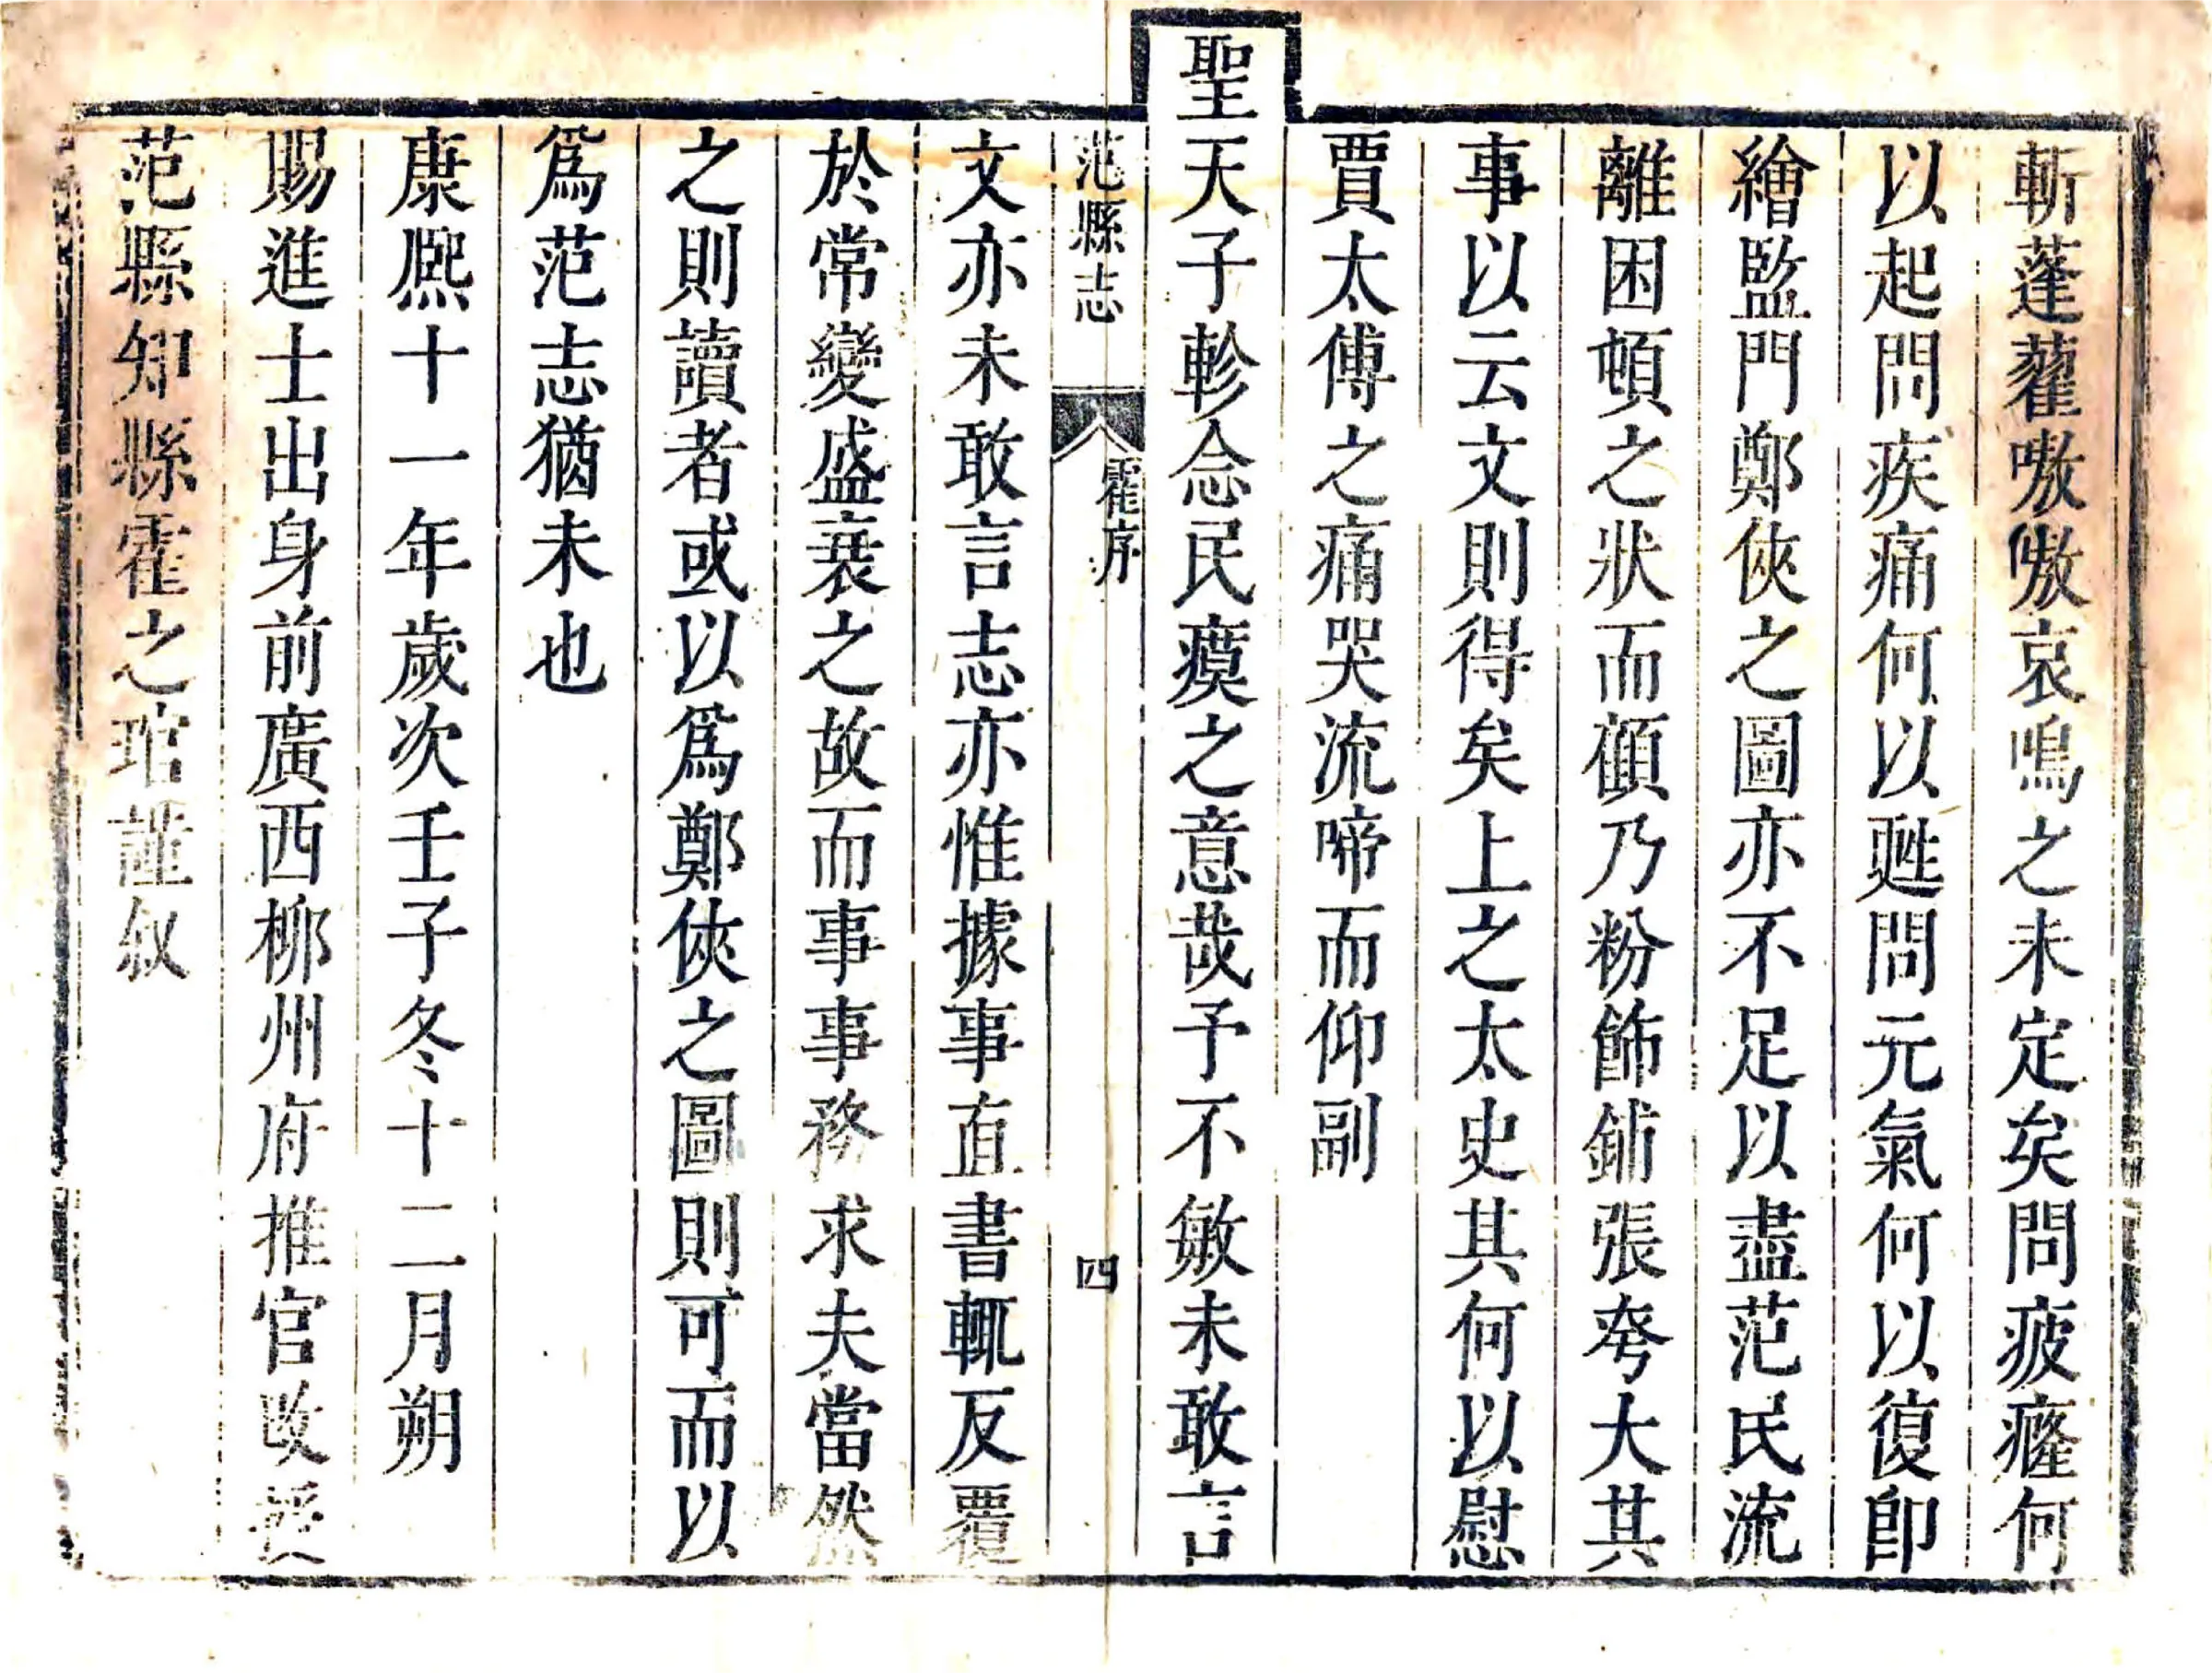 斬蓬藋嗷嗷哀鳴之未定矣問疲癃何
以起問疾痛何以甦問元氣何以復卽
繪監門鄭俠之圖亦不足以盡范民流
離困頓之狀而顧乃粉飾鋪張夸大其
事以云文則得矣上之太史其何以慰
賈太傅之痛哭流啼而仰副
聖天子軫念民瘼之意哉予不敏未敢言
范縣志 霍序 四
文亦未敢言志亦惟據事直書輒反覆
於常變盛衰之故而事事務求夫當然
之則讀者或以爲鄭俠之圖則可而以
爲范志猶未也
康熙十一年歲次壬子冬十二月朔
賜進士出身前廣西柳州府推官改授
范縣知縣霍之琯謹敘